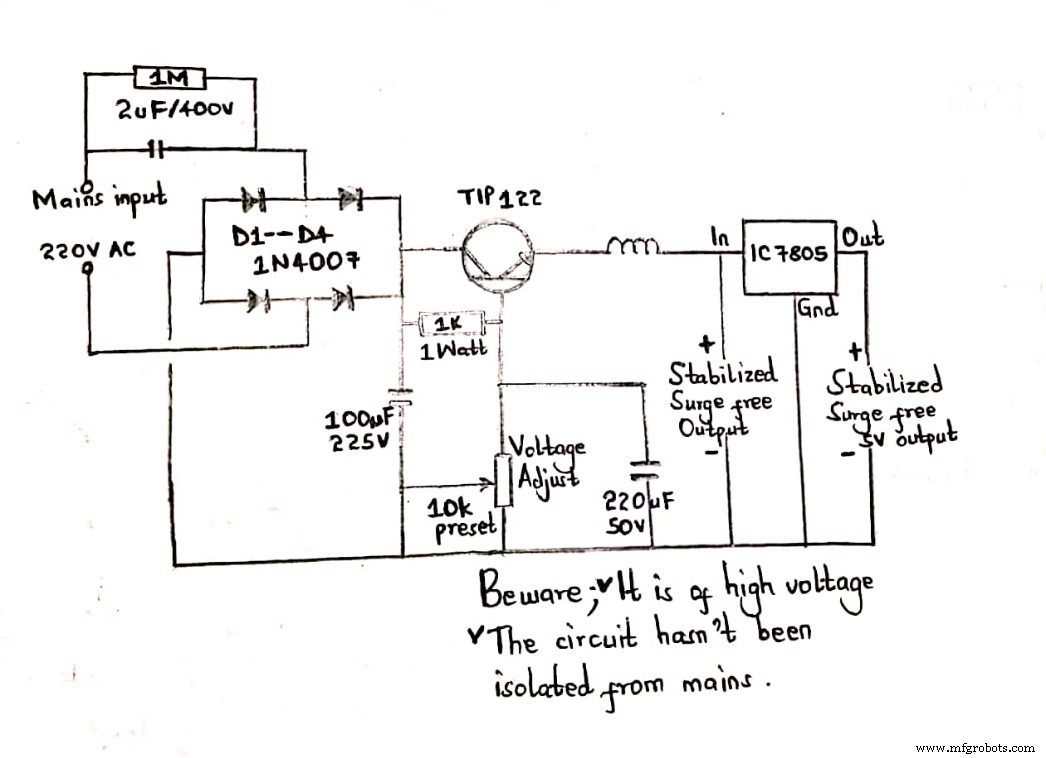 1M
2uF/400V
Mains input
220V AC
D1--D4
1N4007
TIP122
In
IC7805
Out
Gnd
1K
1Watt
100µF
225V
10k
preset
Voltage
Adjust
220µF
50V
+
Stabilized
Surge free
Output
-
+
Stabilized
Surge free
5V output
-
Beware; ✓It is of high voltage
✓The circuit hasn't been
isolated from mains.
www.mfgrobots.com